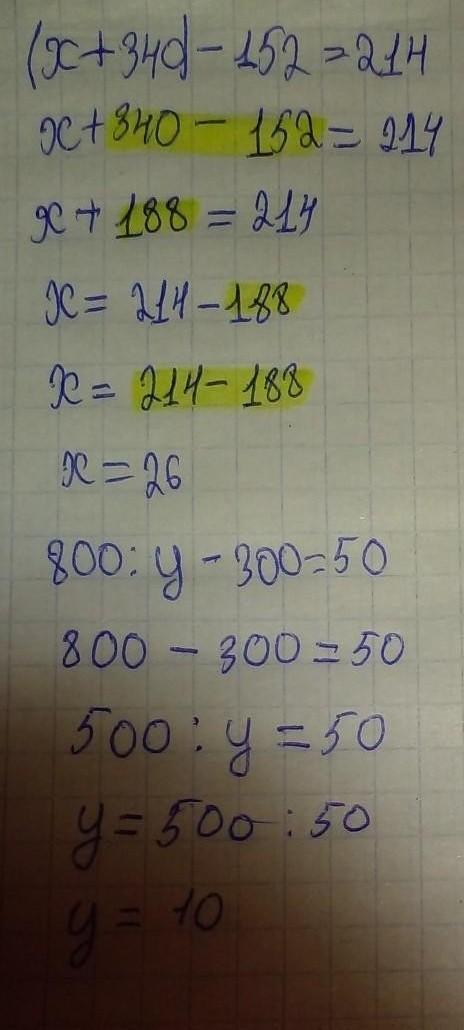 (x+340)-152=214
x+340-152=214
x+188=214
x=214-188
x=214-188
x=26
800:y-300=50
800-300=50
500:y=50
y=500:50
y=10